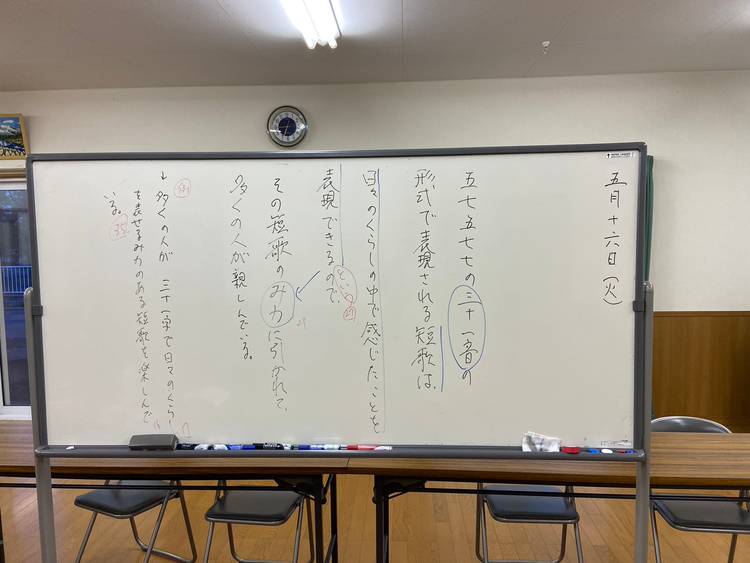 五月十六日(火)
五七五七七の三十一音の
形式で表現される短歌は、
日々のくらしの中で感じたことを
表現できるので、
という
その短歌のみ力に引かれて、
多くの人が親しんでいる。
例
↓多くの人が三十一字で日々のくらし
を表せるみ力のある短歌を楽しんで
いる。
35